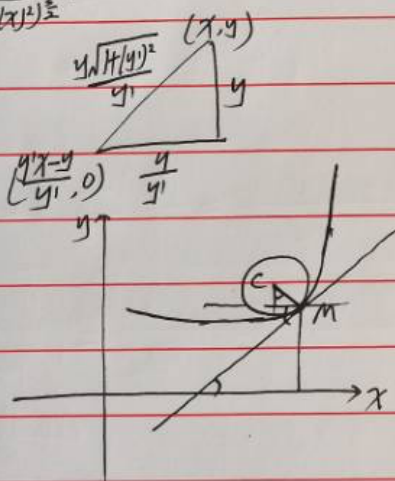 (x)²)^{3/2}
(x,y)
y√1+(y')² / y'
y
(y'x-y / y', 0)
y / y'
y
C
M
x